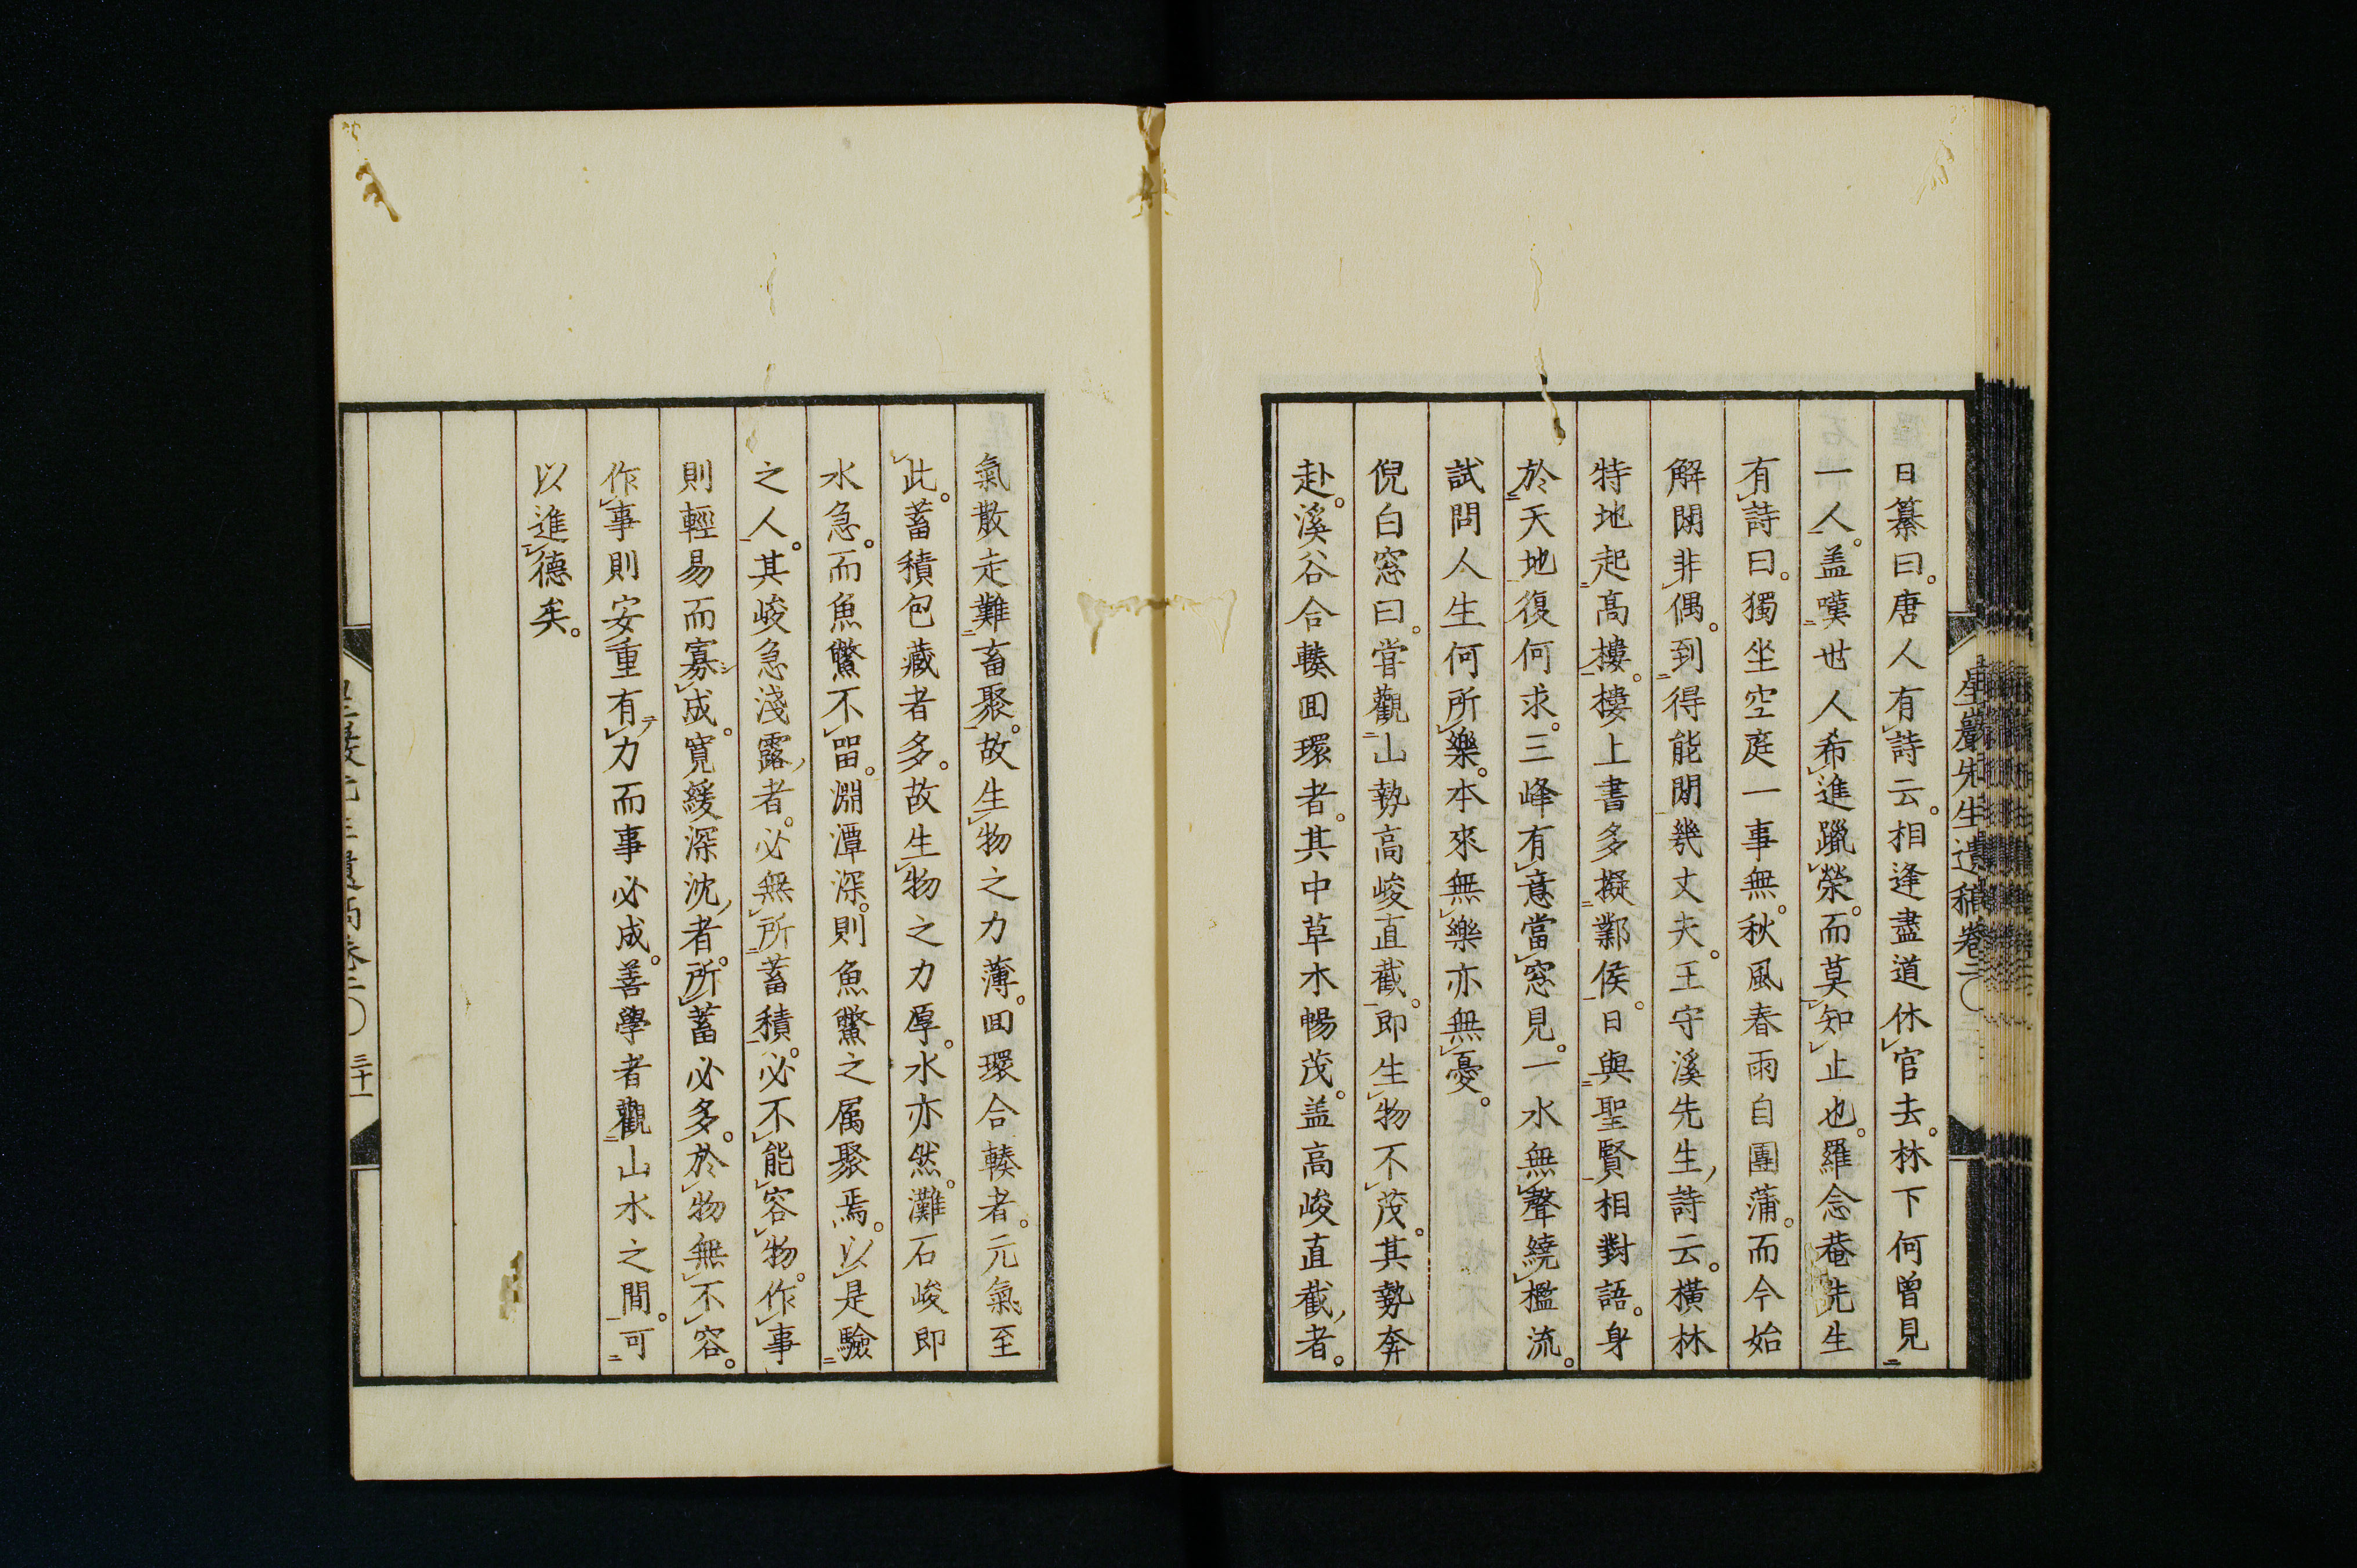 日纂曰。唐人有詩云。相逢盡道休官去。林下何曾見
一人。盖嘆世人希進躐榮。而莫知止也。羅念菴先生
有詩曰。獨坐空庭一事無。秋風春雨自團蒲。而今始
解閑非偶。到得能閑幾丈夫。王守溪先生詩云。橫林
特地起高樓。樓上書多擬鄴侯。日與聖賢相對語。身
於天地復何求。三峰有意當窓見。一水無聲繞檻流。
試問人生何所樂。本來無樂亦無憂。
倪白窓曰。甞觀山勢高峻直截。即生物不茂。其勢奔
赴。溪谷合輳回環者。其中草木暢茂。盖高峻直截者。
星巖先生遺稿卷二〇
氣散走難畜聚。故生物之力薄。回環合輳者。元氣至
此。蓄積包藏者多。故生物之力厚。水亦然。灘石峻即
水急。而魚鱉不畱。淵潭深。則魚鱉之属聚焉。以是驗
之人。其峻急淺露者。必無所蓄積。必不能容物。作事
則輕易而寡シ成。寬緩深沈者。所蓄必多。於物無不容。
作事則安重有テ力而事必成。善學者觀山水之間。可
以進德矣。
三十一